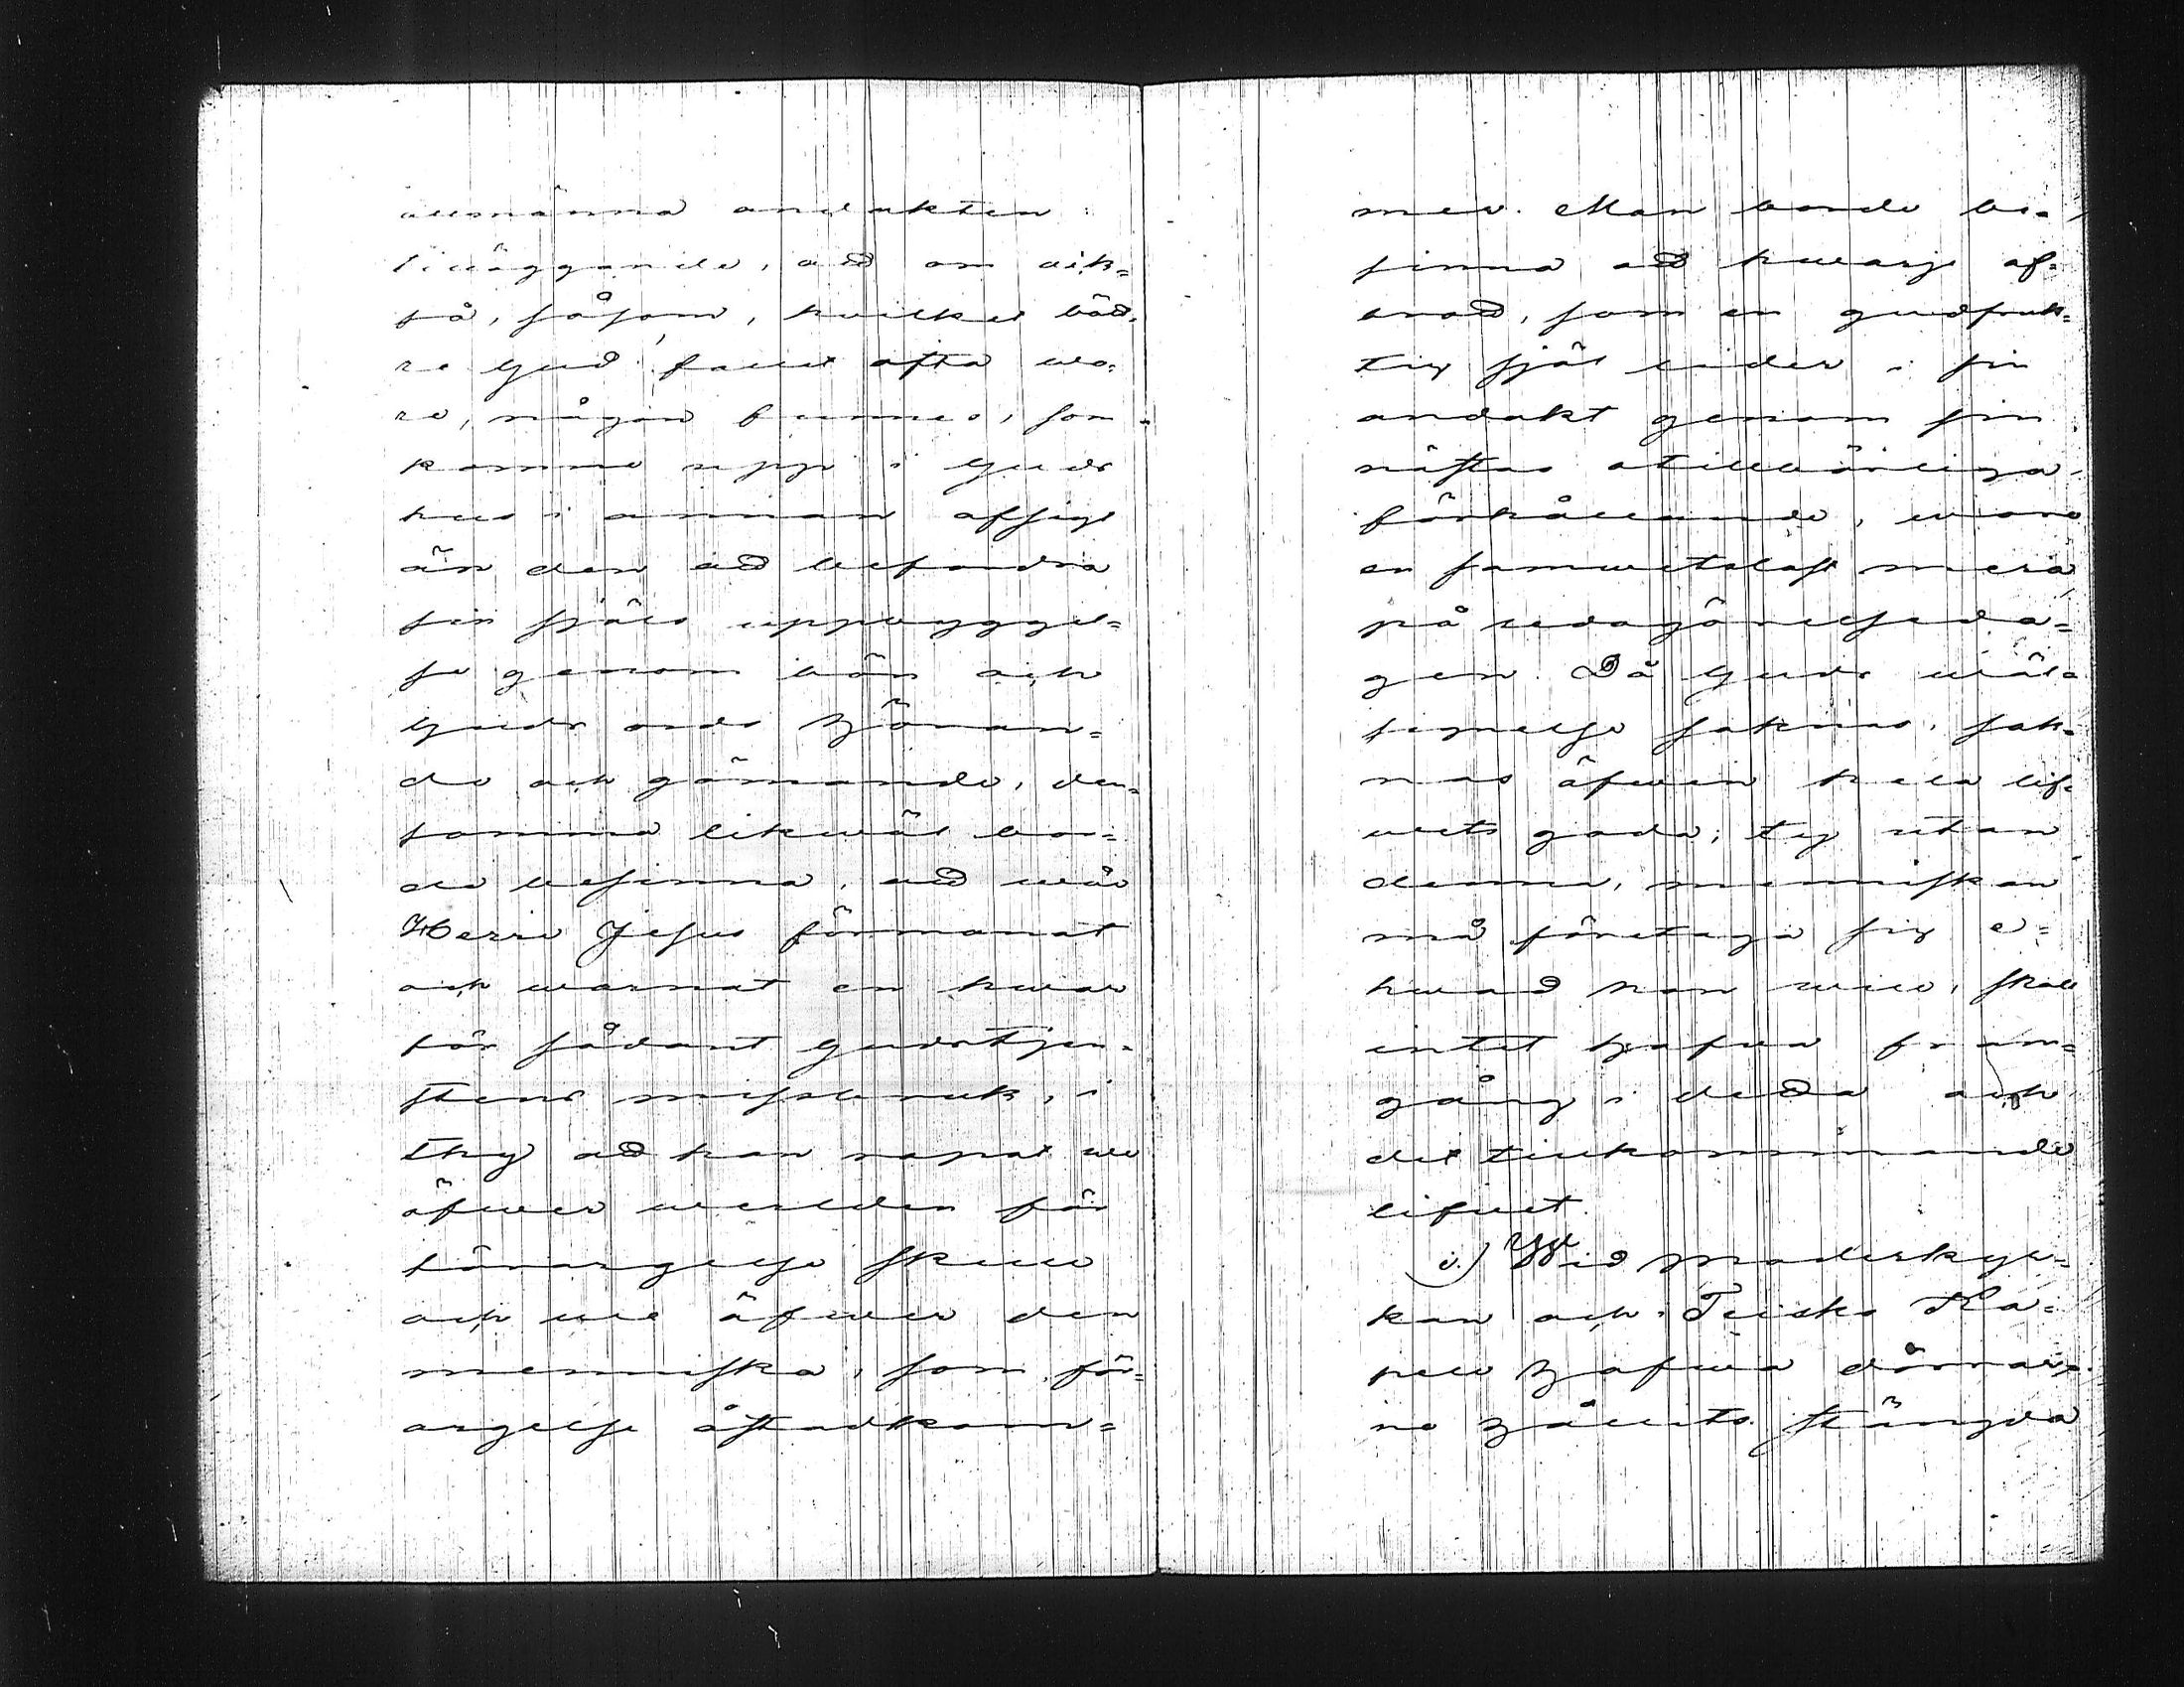 allmänna andakten
tilläggande, att om ock=
så, såsom, hvilket bätt=
re Gud fallit ofta wo=
re, någon funnes, som
komme upp i Guds
hus i annan afsigt
än den att befordra
sin själs uppbyggel=
se genom bön och
Guds ords höran=
de och gömande, den=
samma likwäl bor=
de besinna, att wår
Herre Jesus förmanat
och warnat en hwar
för sådant Gudstjen=
stens missbruk, i
thy att han ropat we
öfwer werlden för
förargelse skull
och we öfwer den
menniska, som för=
argelse åstadkom=
mer. Man borde be=
sinna att hwarje af=
brott, som en gudfruk=
tig själ lider i sin
andakt genom sin
nästas otillbörliga
förhållande, warder
en samwetslast mera
på redogörelseda=
gen. Då Guds wäl=
signelse saknas, sak=
nas äfwen hela lif=
wets goda; ty utan
denna, menniskan
må företaga sig e=
hwad han will, skall
intet hafwa fram=
gång i detta och
det tillkommande
lifwet.
i.) Wid Moderkyr=
kan och Teisko Ka=
pell hafwa dörrar=
ne hållits stängda